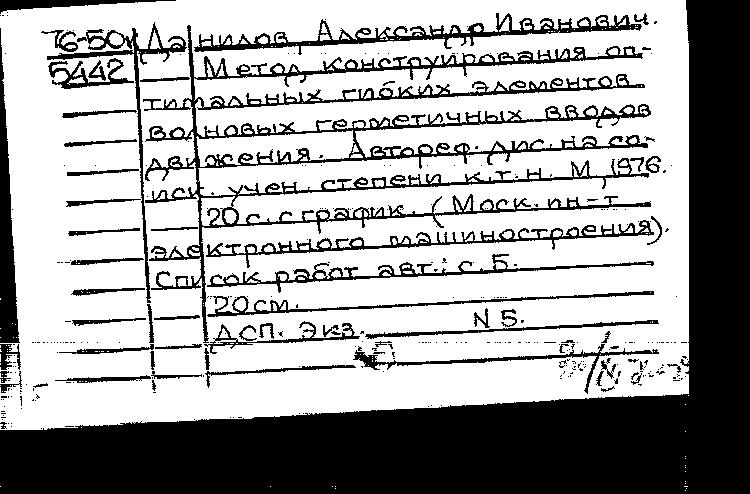 76-50к Данилов, Александр Иванович.
5442 Метод конструирования оп-
тимальных гибких элементов
волновых герметичных вводов
движения. Автореф. дис. на со-
иск. учен. степени к.т.н. М, 1976.
20 с. с график. (Моск. ин-т
электронного машиностроения).
Список работ авт.: с. 5.
20 см.
ДСП. Экз. N 5.